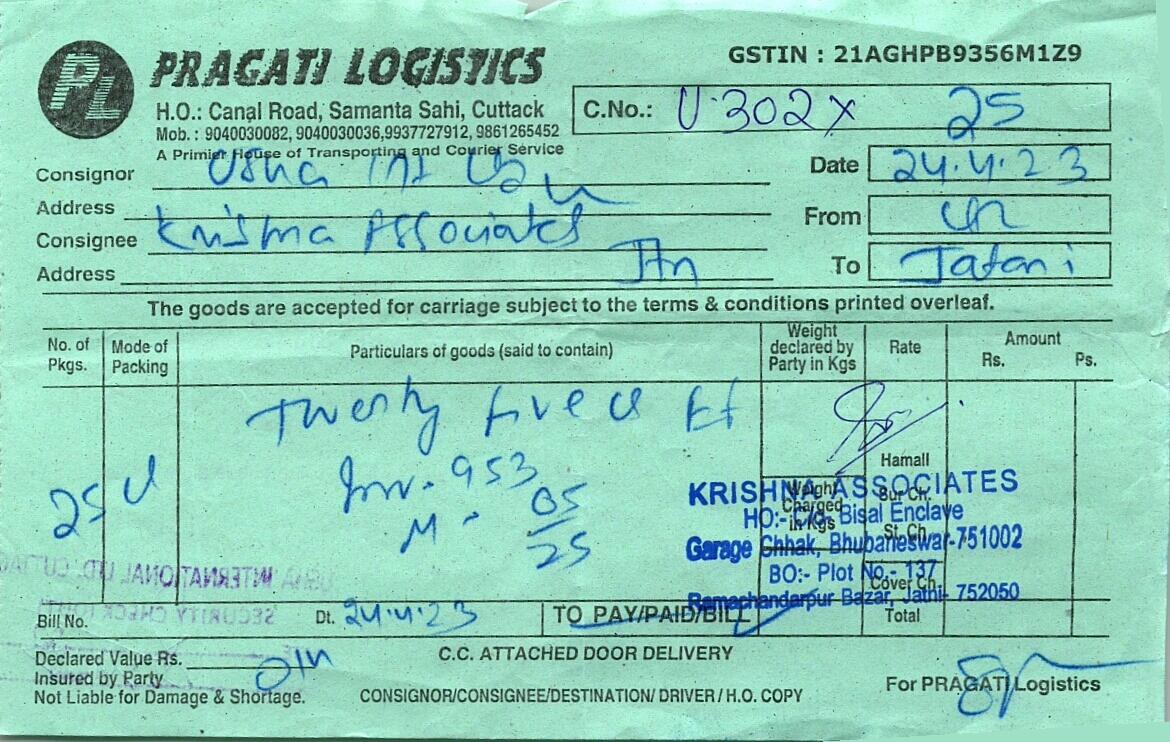 PL PRAGATI LOGISTICS
GSTIN : 21AGHPB9356M1Z9
H.O.: Canal Road, Samanta Sahi, Cuttack
Mob. : 9040030082, 9040030036,9937727912, 9861265452
A Primier House of Transporting and Courier Service
C.No.: U·302X 25
Consignor Usha Int
Date 24·4·23
Address
From
Consignee Krishna Associates
Address Jtn
To Jatani
The goods are accepted for carriage subject to the terms & conditions printed overleaf.
No. of Pkgs. Mode of Packing Particulars of goods (said to contain) Weight declared by Party in Kgs Rate Amount Rs. Ps.
Twenty five
Inv. 953
25 M - 05
25
Hamall
Weight Charged in Kgs
Sur Ch.
St. Ch.
Cover Ch.
KRISHNA ASSOCIATES
HO:- Bisal Enclave
Garage Chhak, Bhubaneswar-751002
BO:- Plot No.- 137
Ramachandarpur Bazar, Jatni- 752050
USHA INTERNATIONAL LTD. CUTTACK
SECURITY CHECK
Bill No. Dt. 24·4·23 TO PAY/PAID/BILL Total
Declared Value Rs.
C.C. ATTACHED DOOR DELIVERY
Insured by Party
Not Liable for Damage & Shortage.
CONSIGNOR/CONSIGNEE/DESTINATION/ DRIVER / H.O. COPY
For PRAGATI Logistics